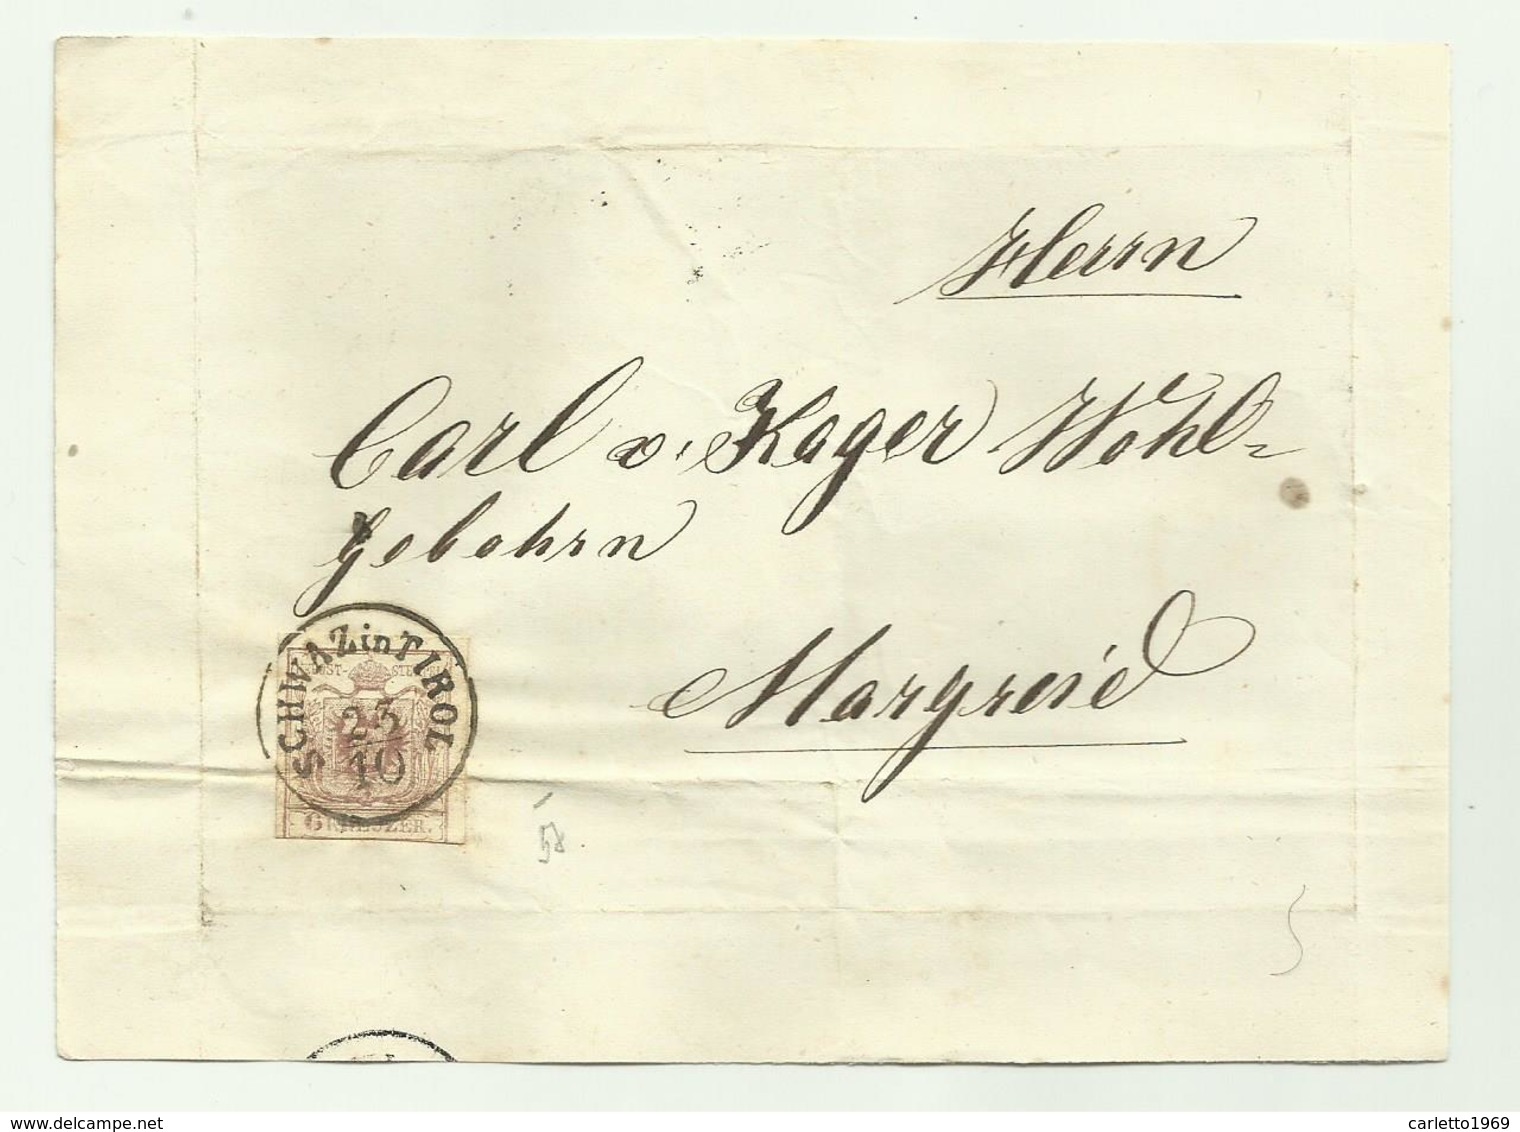 Herrn
Carl v. Kager Wohl=
gebohrn
Margreid
SCHWAZ in TIROL
23
10
6 KREUZER.
58
delcampe.net
carletto1969